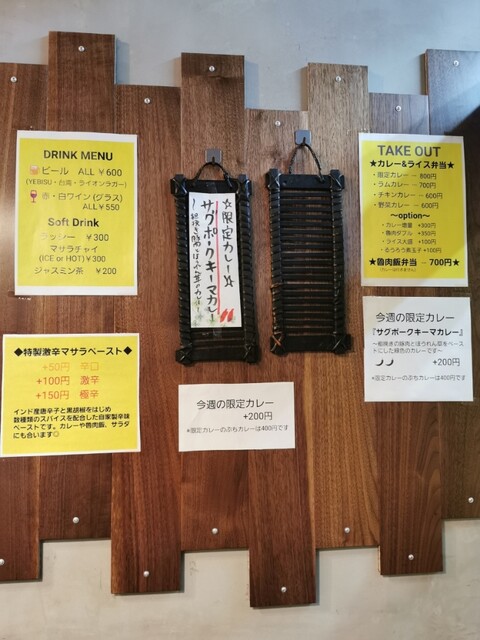 DRINK MENU
ビール ALL ￥600
(YEBISU・台湾・ライオンラガー)
赤・白ワイン(グラス)
ALL￥550
Soft Drink
ラッシー ￥300
マサラチャイ
(ICE or HOT)￥300
ジャスミン茶 ￥200
◆特製激辛マサラペースト◆
+50円 辛口
+100円 激辛
+150円 極辛
インド産唐辛子と黒胡椒をはじめ
数種類のスパイスを配合した自家製辛味
ペーストです。カレーや魯肉飯、サラダ
にも合います◎
☆限定カレー☆
サグポークキーマカレー
今週の限定カレー
+200円
※限定カレーのぷちカレーは400円です
TAKE OUT
★カレー&ライス弁当★
・限定カレー ー 800円
・ラムカレー ー 700円
・チキンカレー ー 600円
・野菜カレー ー 600円
〜option〜
・カレー増量 +300円
・魯肉ダブル +350円
・ライス大盛 +100円
・るうろう煮玉子 +100円
★魯肉飯弁当 ー 700円★
今週の限定カレー
『サグポークキーマカレー』
〜粗挽きの豚肉とほうれん草をペース
トにした緑色のカレーです〜
+200円
※限定カレーのぷちカレーは400円です